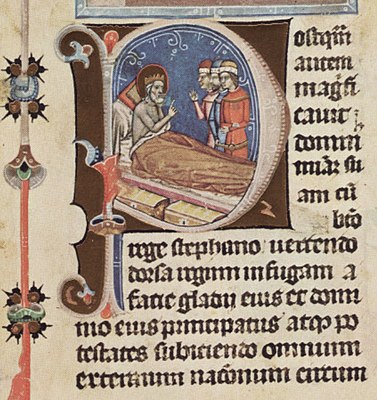 Postq̃m
autem
magñfi
cauit
domin
miãm su
am cũ
bt̃o
rege stephano uertendo
dorsa regum in fugam a
facie gladii eius et domi
nio eius principatus atqꝫ po
testates subiciendo omnium
nacionum circum